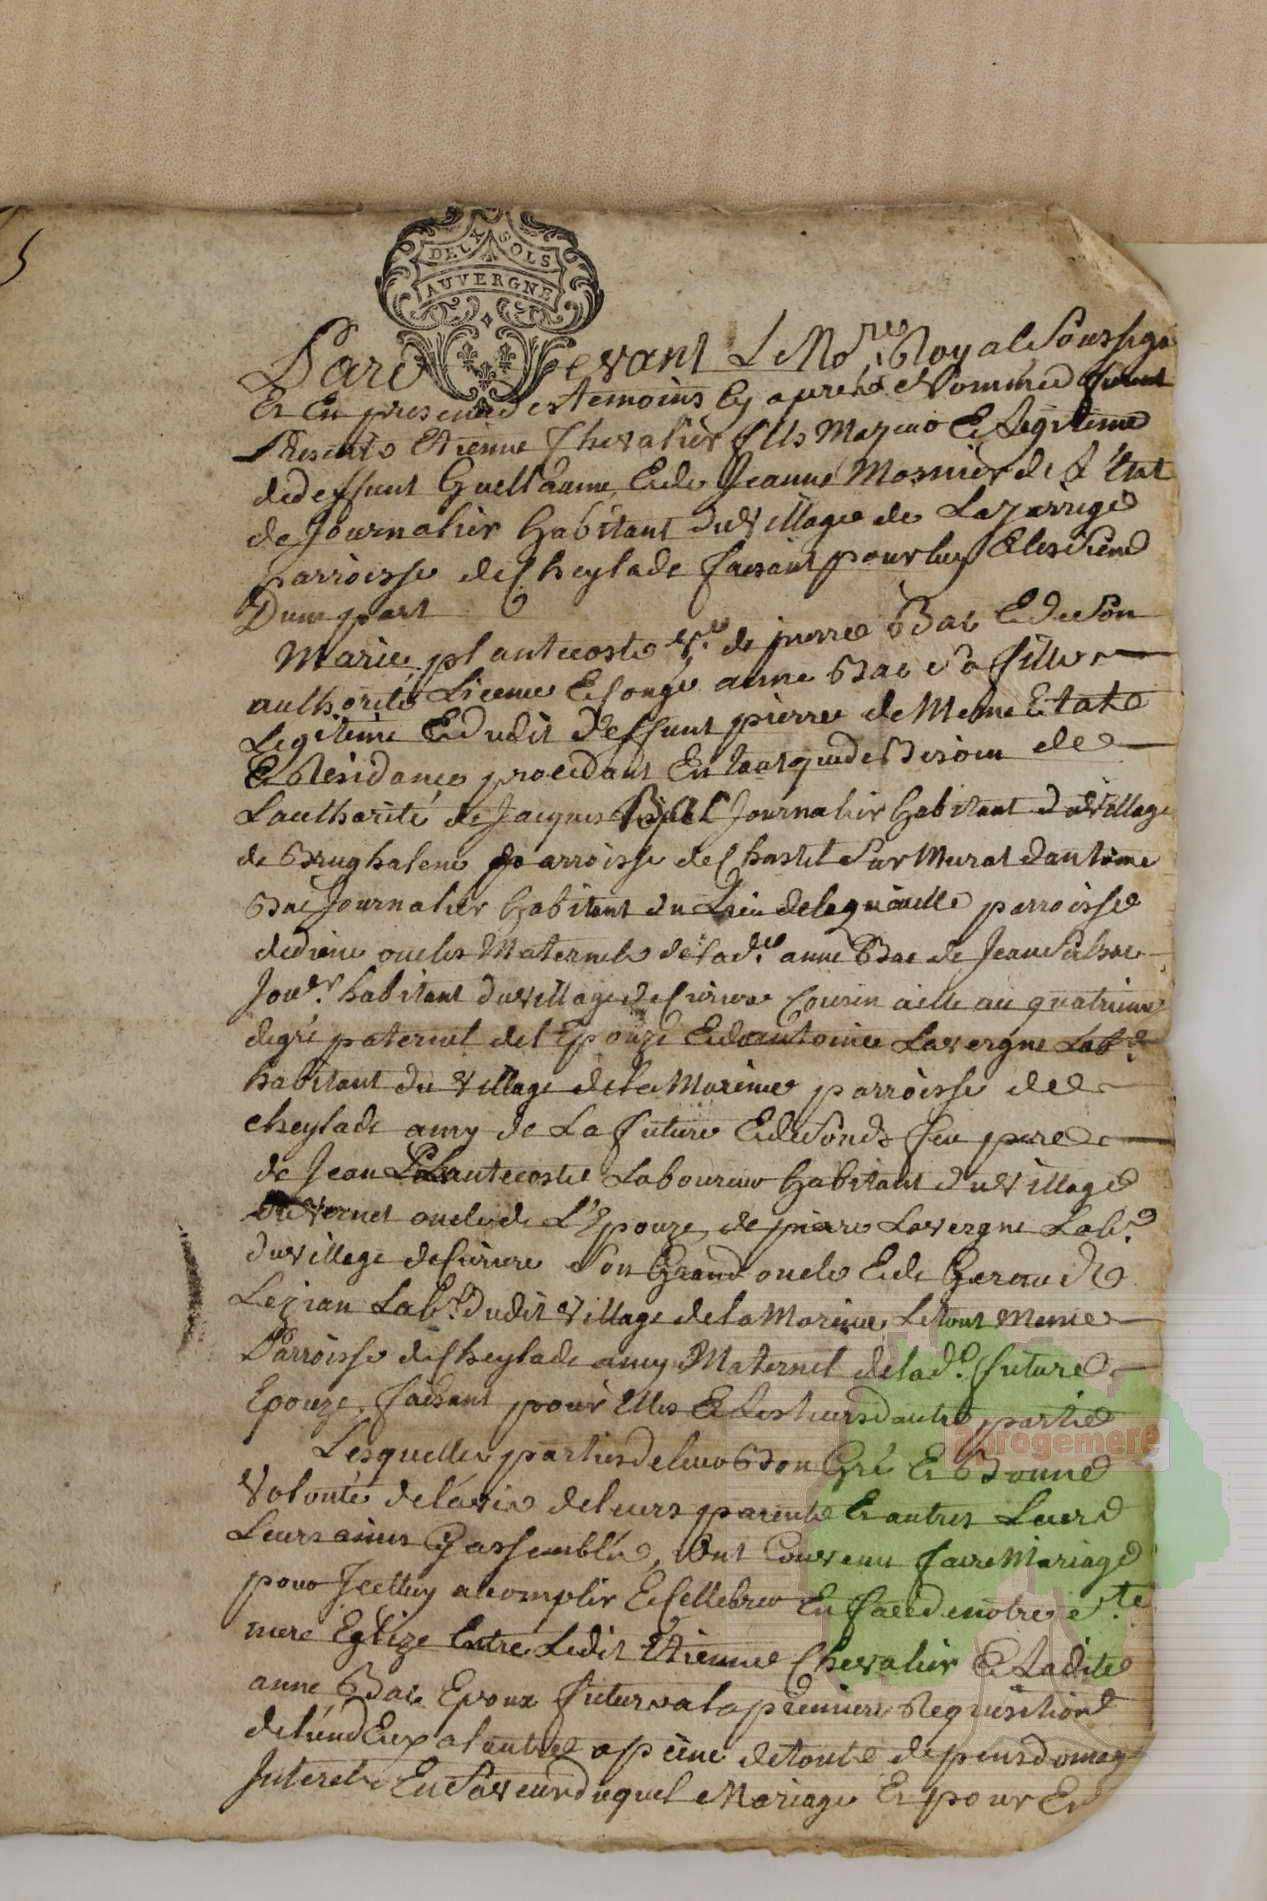 5
DEUX SOLS
AUVERGNE
Pardevant Le No.re Royal Soussigné
Et En presence des temoins Cy apres Nommés furent
Presents Etienne Chevalier fils Mageur Et Legitime
de deffunt Guellaume Et de Jeanne Mosnier de L'état
de Journalier habitant du Village de Lazarrige
parroisse de Cheylade faisant pour luy Et les Siens
Dune part
Marie plantecoste V.ve de pierre Bac Et de Son
authorité Licence Et Congé anne Bac Sa fille
Legitime Et dudit deffunt pierre de Meme Etat
Et Residance procedant En tant que de Besoin de
Lautharité de Jacques Bac Journalier habitant du Village
de Brughalene parroisse de Chastel Sur Murat dantoine
Bac Journalier habitant du Lieu de parroisse
de dienne oncles Maternels de Lad.te anne Bac de Jean
Jour.r habitant du Village de Curiere Cousin au quatrieme
degré paternel de l'Epouze Et dantoine Lavergne Lab.r
habitant du Village de la Moreinie parroisse de
cheylade amy de La future Et de Sond feu pere
de Jean Plantecoste Laboureur habitant du Village
du Vernet oncle de L'Epouze de pierre Lavergne Lab.r
du Village de Curiere Son Grand oncle Et de Geraud
Lezian Lab.r dudit Village de la Moreinie Le tout Meme
Parroisse de Cheylade amy Maternel de lad.e future
Epouze faisant pour Elles Et Les Leurs dautre partie
Lesquelles parties de leur Bon Gré Et Bonne
Volonté de lavis de leurs parents Et autres Leurs
Leurs amis Cy assemblés, ont Convenu faire Mariage
pour Jcelluy acomplir Et Cellebrer En face de notre S.te
mere Eglize Entre Ledit Etienne Chevalier Et Ladite
anne Bac Epoux futurs a la premiere Requisition
de lund Eux a lautre a peine de toute depens domag
Interets En faveur duquel Mariage Et pour En
abrogemere